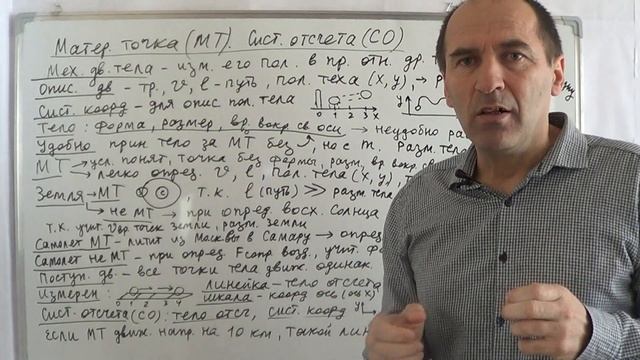 Матер. точка (МТ). Сист. отсчета (СО)
Мех. дв. тела - изм. его пол. в пр. отн. др. т
Опис. дв - тр., v, l - путь, пол. тела (x, y), →
Сист. коорд - для опис пол. тела
0 1 2 3 x
y
Тело: форма, размер, вр. вокр св оси → неудобно ра
Удобно прин тело за МТ без ↗, но с m. Разм. тела
МТ → усл. понят, точка без формы, разм, вр. вокр. св
→ легко опред. v, l, пол. тела (x, y),
Земля → МТ С т.к. l (путь) ≫ разм. тела
→ не МТ → при опред. восх. солнца
т.к. учит vвр. точек земли, разм. земли
Самолет МТ - летит из Москвы в Самару → опред
Самолет не МТ - при опред. Fсопр возд., учит. фо
Поступ. дв. - все точки тела движ. одинак.
Измерен: 0 1 2 3 4 линейка - тело отсчета
шкала - коорд ось (ось x)
Сист. отсчета (СО): тело отсч, сист. коорд
если МТ движ. напр. на 10 км, такой лин